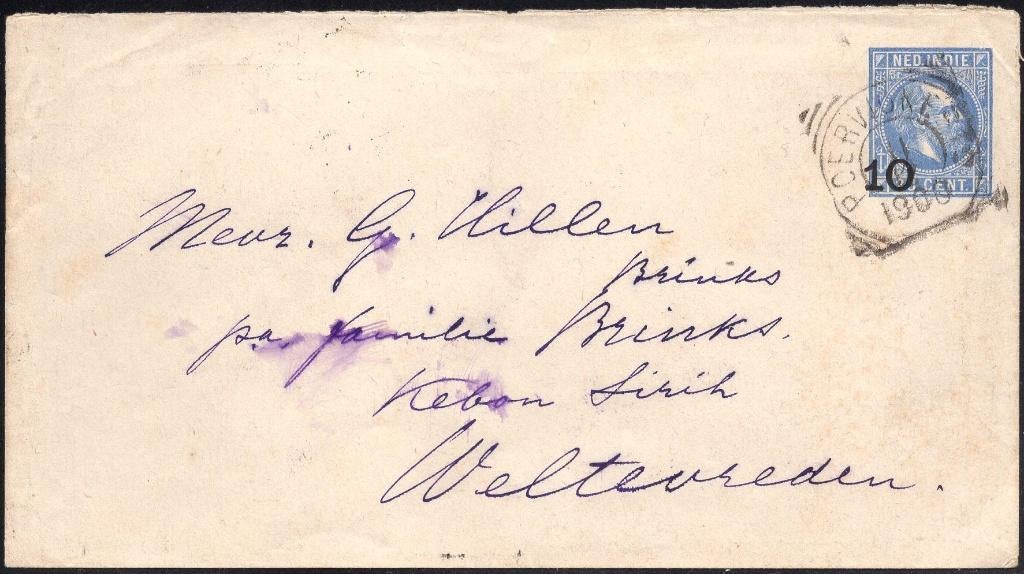 NED. INDIE
10
CENT.
1900
Mevr. G. Hillen
Brinks
pa. familie Brinks.
Kebon Sirih
Weltevreden.